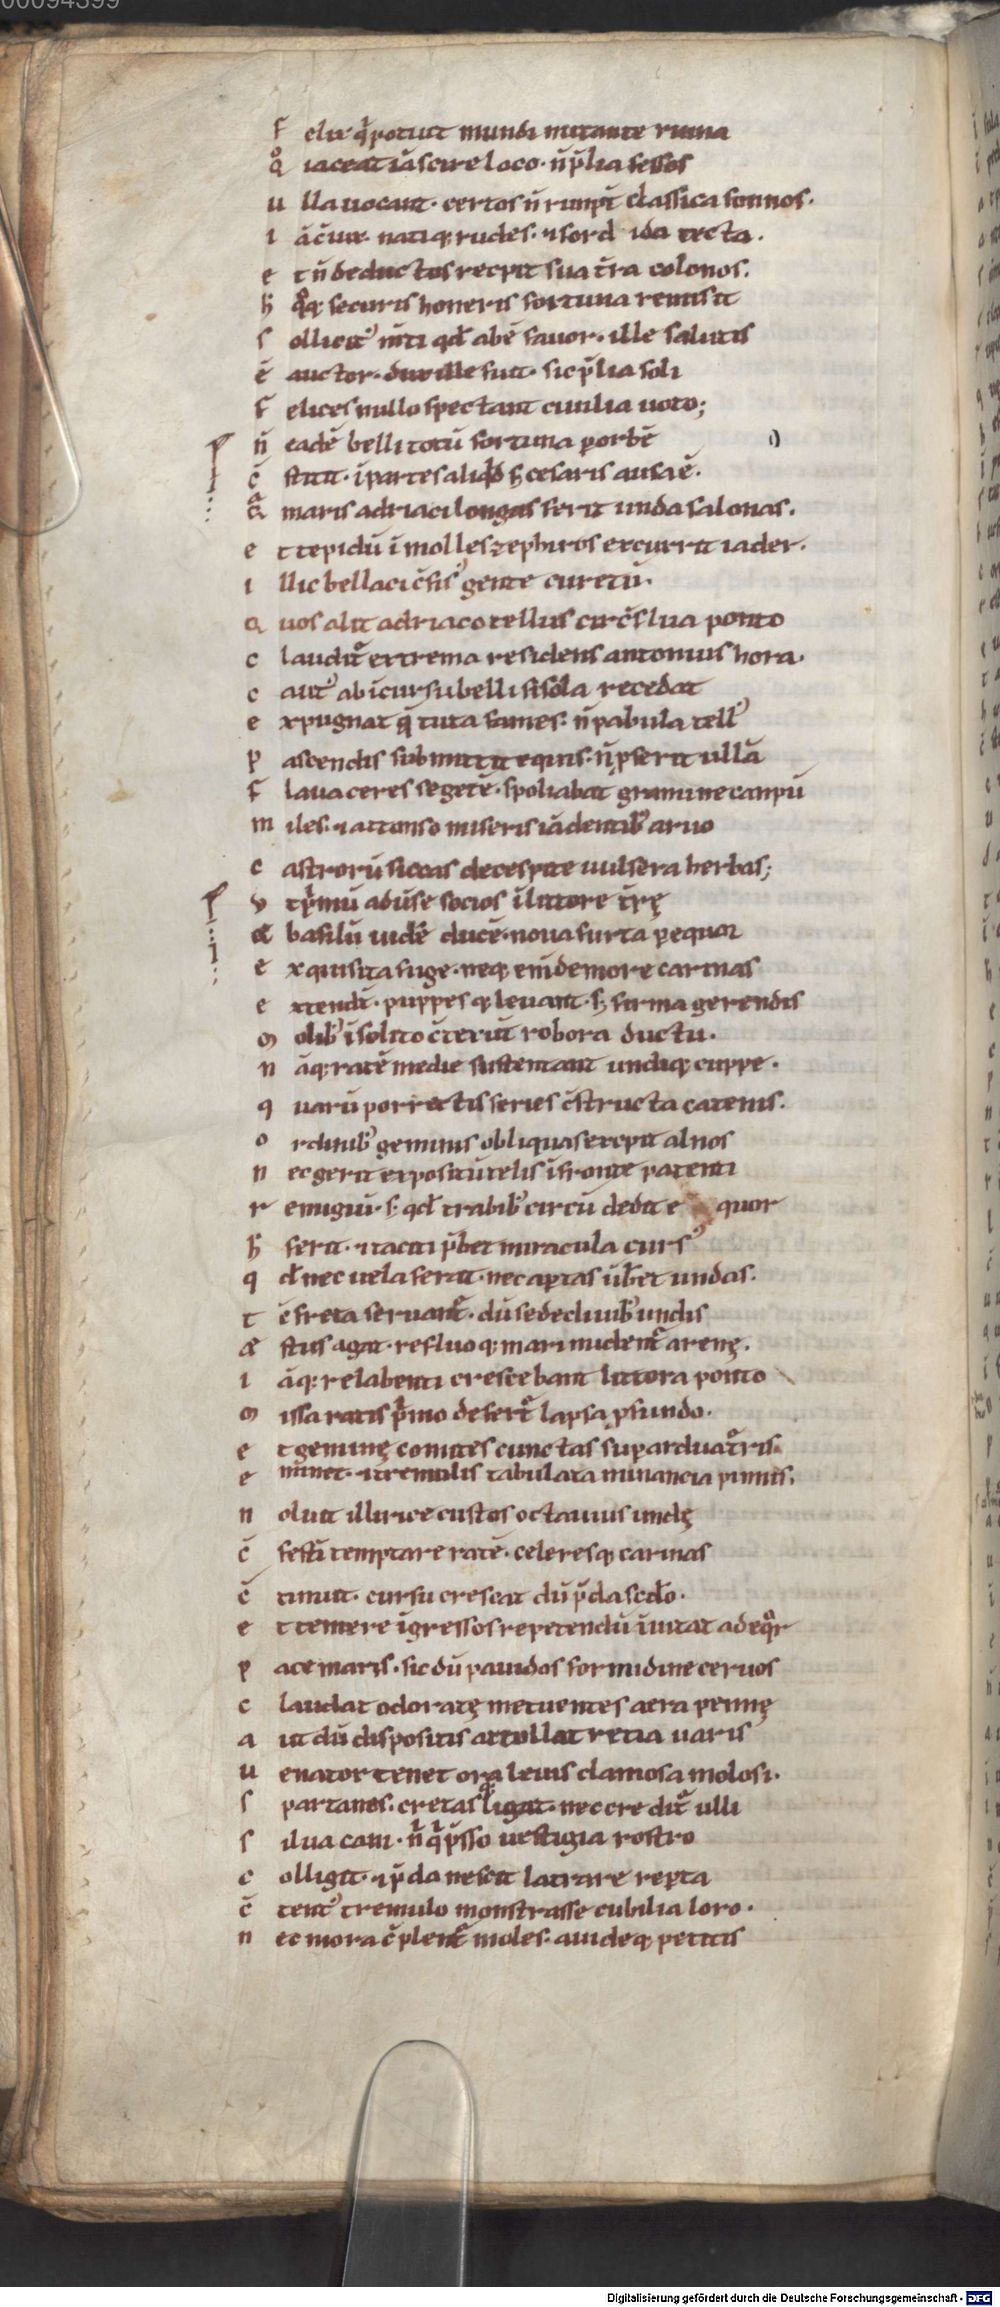 00094399
F elix q̇ potuit mundi nutante ruina
Qͦ iaceat iā scire loco· n̄ p̄lia fessos
u lla uocant· certos n̄ rūpt̄ classica somnos·
i ā c̄iux natiq; rudes· ⁊ sord ida tecta·
e t n̄ deductos recipit sua t̄ra colonos·
h̄ qͦq; securis honeris fortuna remisit
s ollicitꝰ m̄ti qd̄ abē fauor· ille salutis
ē auctor· dux ille fuit· sic p̄lia soli
F elices nullo spectant ciuilia uoto;
n̄ eadē belli totū fortuna ꝑ orbē
c̄ stitit· ī partes aliqͥd s; cesaris ausa ē·
Qᵃ maris adriaci longas ferit unda salonas·
e t tepidū ī molles zephiros excurrit iader·
i llic bellaci c̄fisꝰ gente curetū·
Q uos alit adriaco tellus circ̄flua ponto
c laudit᷑ extrema residens antonius hora·
c autꝰ ab īcursu belli si sola recedat
e xpugnat q̄ tuta fames· n̄ pabula tellꝰ
p ascendis submittit equis· n̄ ꝓserit ullā
F laua ceres segetē· spoliabat gramine canpū
m iles· ⁊ attonso miseris iā dentibꝰ aruo
c astrorū siccas de cespite uulserat herbas;
v t p̄mū aduerse socios ī littore t̄rę
& basilū uidē ducē· noua furta ꝑ equor
e xquisita fuge· neq; enī de more carinas
e xtendt̄· puppesq; leuant· s; firma gerendis
M olibꝰ īsolito c̄texūt robora ductu·
n āq; ratē medie sustentant undiq; cuppe·
q uarū porrectis series c̄structa catenis·
o rdinibꝰ geminis obliquas excipit alnos
n ec gerit expositū telis ī fronte patenti
r emigiū· s; qd̄ trabibꝰ circū dedit e quor
h̄ ferit· ⁊ taciti p̄bet miracula cursꝰ
q d̄ nec uela ferat· nec aptas ūb̄et undas·
t c̄ freta seruant᷑· dū se decliuibꝰ undis
æ stus agat· refluoq; mari nudent᷑ arenę·
i āq; relabenti crescebant littora ponto
M issa ratis p̄mo defert᷑ lapsa ꝓfundo·
e t geminę comites cunctas sup ardua t᷑ris
e minet· ⁊ tremulis tabulata minancia pinnis·
n oluit illirice custos octauius undę
c̄ festī temptare ratē· celeresq; carinas
c̄ tinuit· cursu crescat dū p̄da scd̄o·
e t temere īgressos repetendū inuitat ad eqͦr
p ace maris· sic dū pauidos formidine ceruos
c laudat odoratę metuentes aera pennę
a ut dū dispositis attollat retia uaris
u enator tenet ora leuis clamosa molosi·
s partanos· cretasq; ligat· nec credit᷑ ulli
s ilua cani· n̄ q̇ p̄sso uestigia rostro
c olligit· ⁊ p̄da nescit latrare repta
c̄ tentꝰ tremulo monstrasse cubilia loro·
n ec mora c̄plent᷑ moles· auideq; petitis
Digitalisierung gefördert durch die Deutsche Forschungsgemeinschaft - DFG